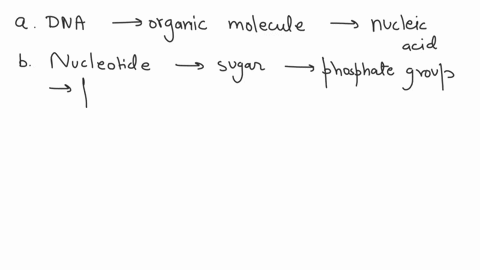 a. DNA → organic molecule → nucleic acid
b. Nucleotide → sugar → phosphate group
→